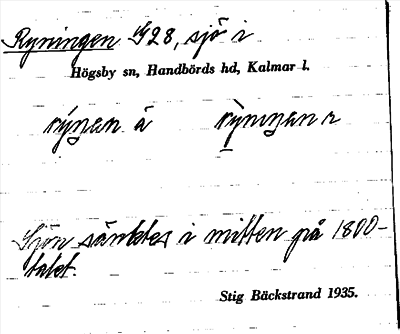 Ryningen G28, sjö i
Högsby sn, Handbörds hd, Kalmar l.
Sjön sänktes i mitten på 1800-
talet.
Stig Bäckstrand 1935.